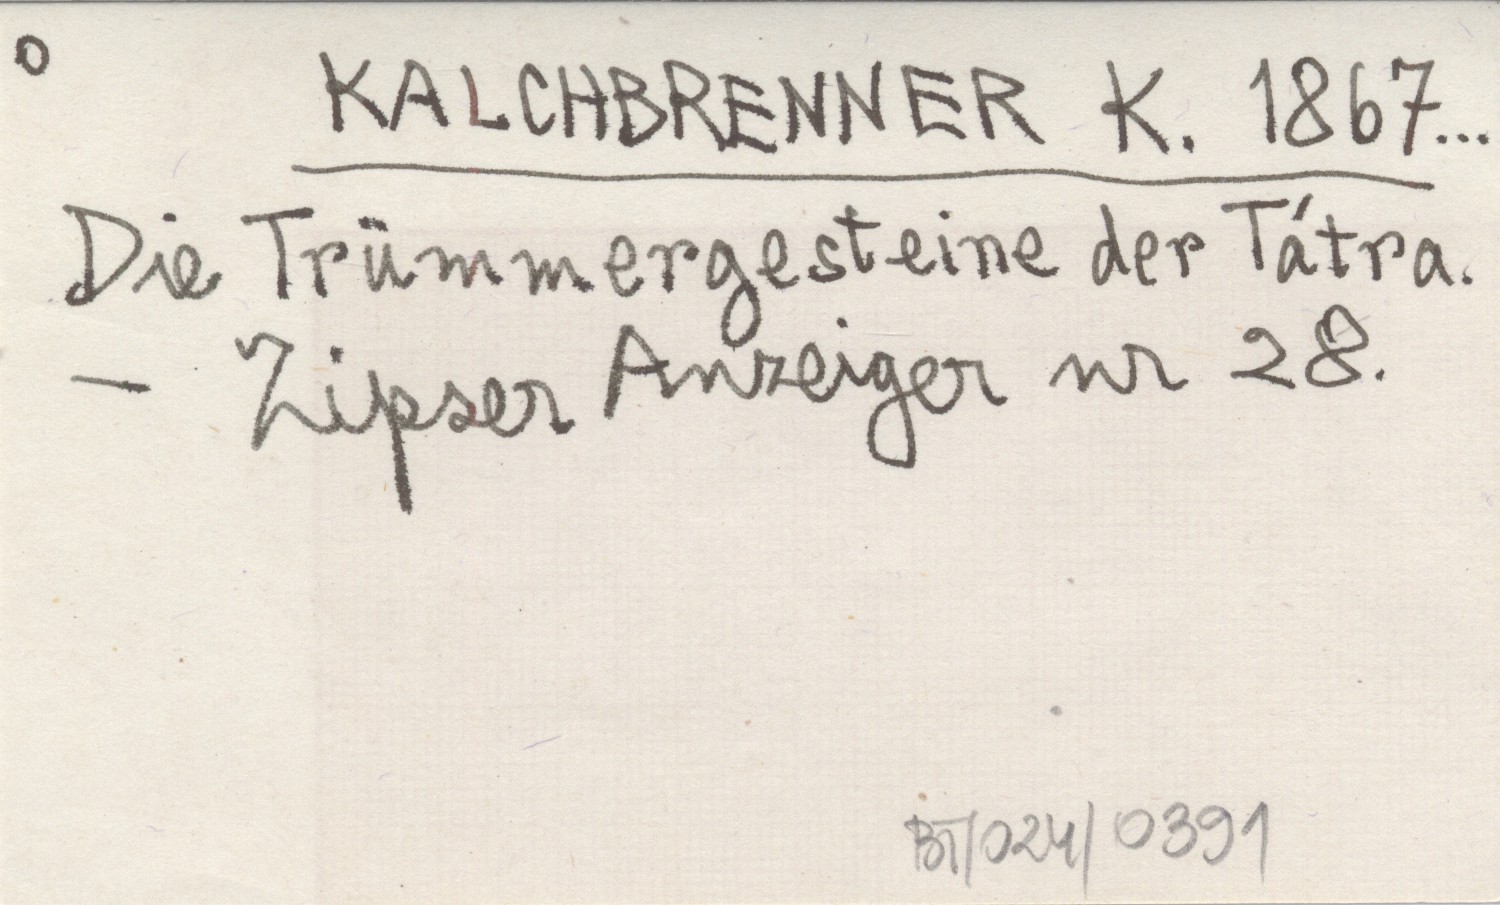 o KALCHBRENNER K. 1867...
Die Trümmergesteine der Tátra.
— Zipser Anzeiger nr 28.
BT/024/0391